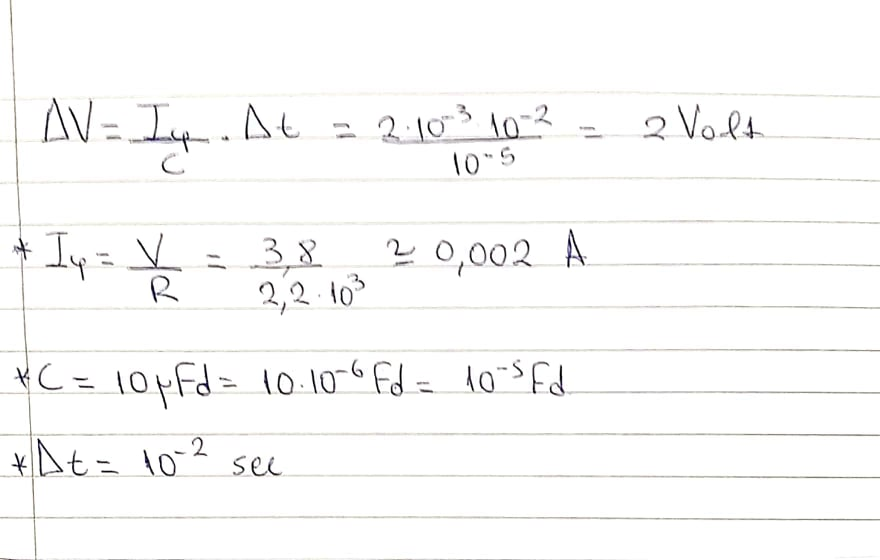 ΔV = Iφ/C . Δt = 2·10⁻³ 10⁻²/10⁻⁵ = 2 Volt
* Iφ = V/R = 3,8/2,2·10³ ≃ 0,002 A
* C = 10μFd = 10.10⁻⁶ Fd = 10⁻⁵ Fd
* Δt = 10⁻² sec